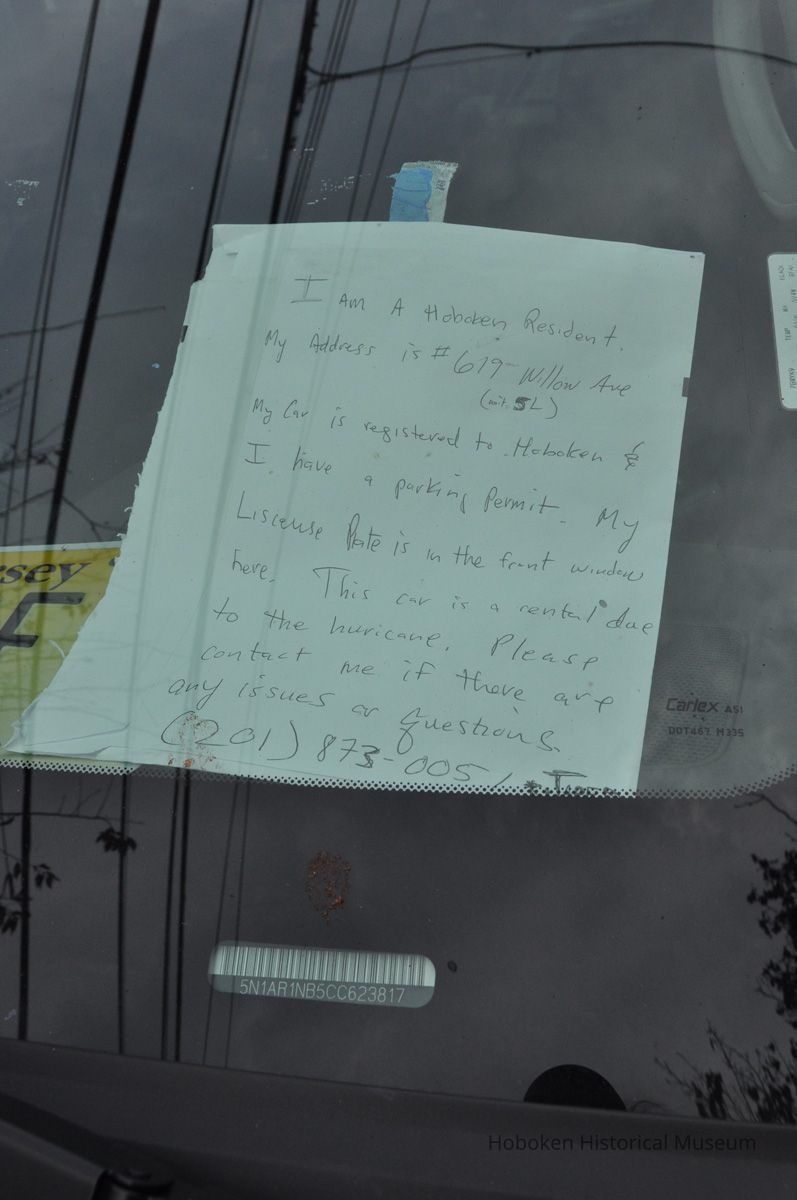 I AM A Hoboken Resident.
My Address is # 619 Willow Ave
(unit 5L)
My Car is registered to Hoboken &
I have a parking permit. My
Liscense Plate is in the front window
here. This car is a rental due
to the huricane. Please
contact me if there are
any issues or questions.
(201) 873-0051
rsey
Carlex AS1
DOT467 M335
5N1AR1NB5CC623817
Hoboken Historical Museum